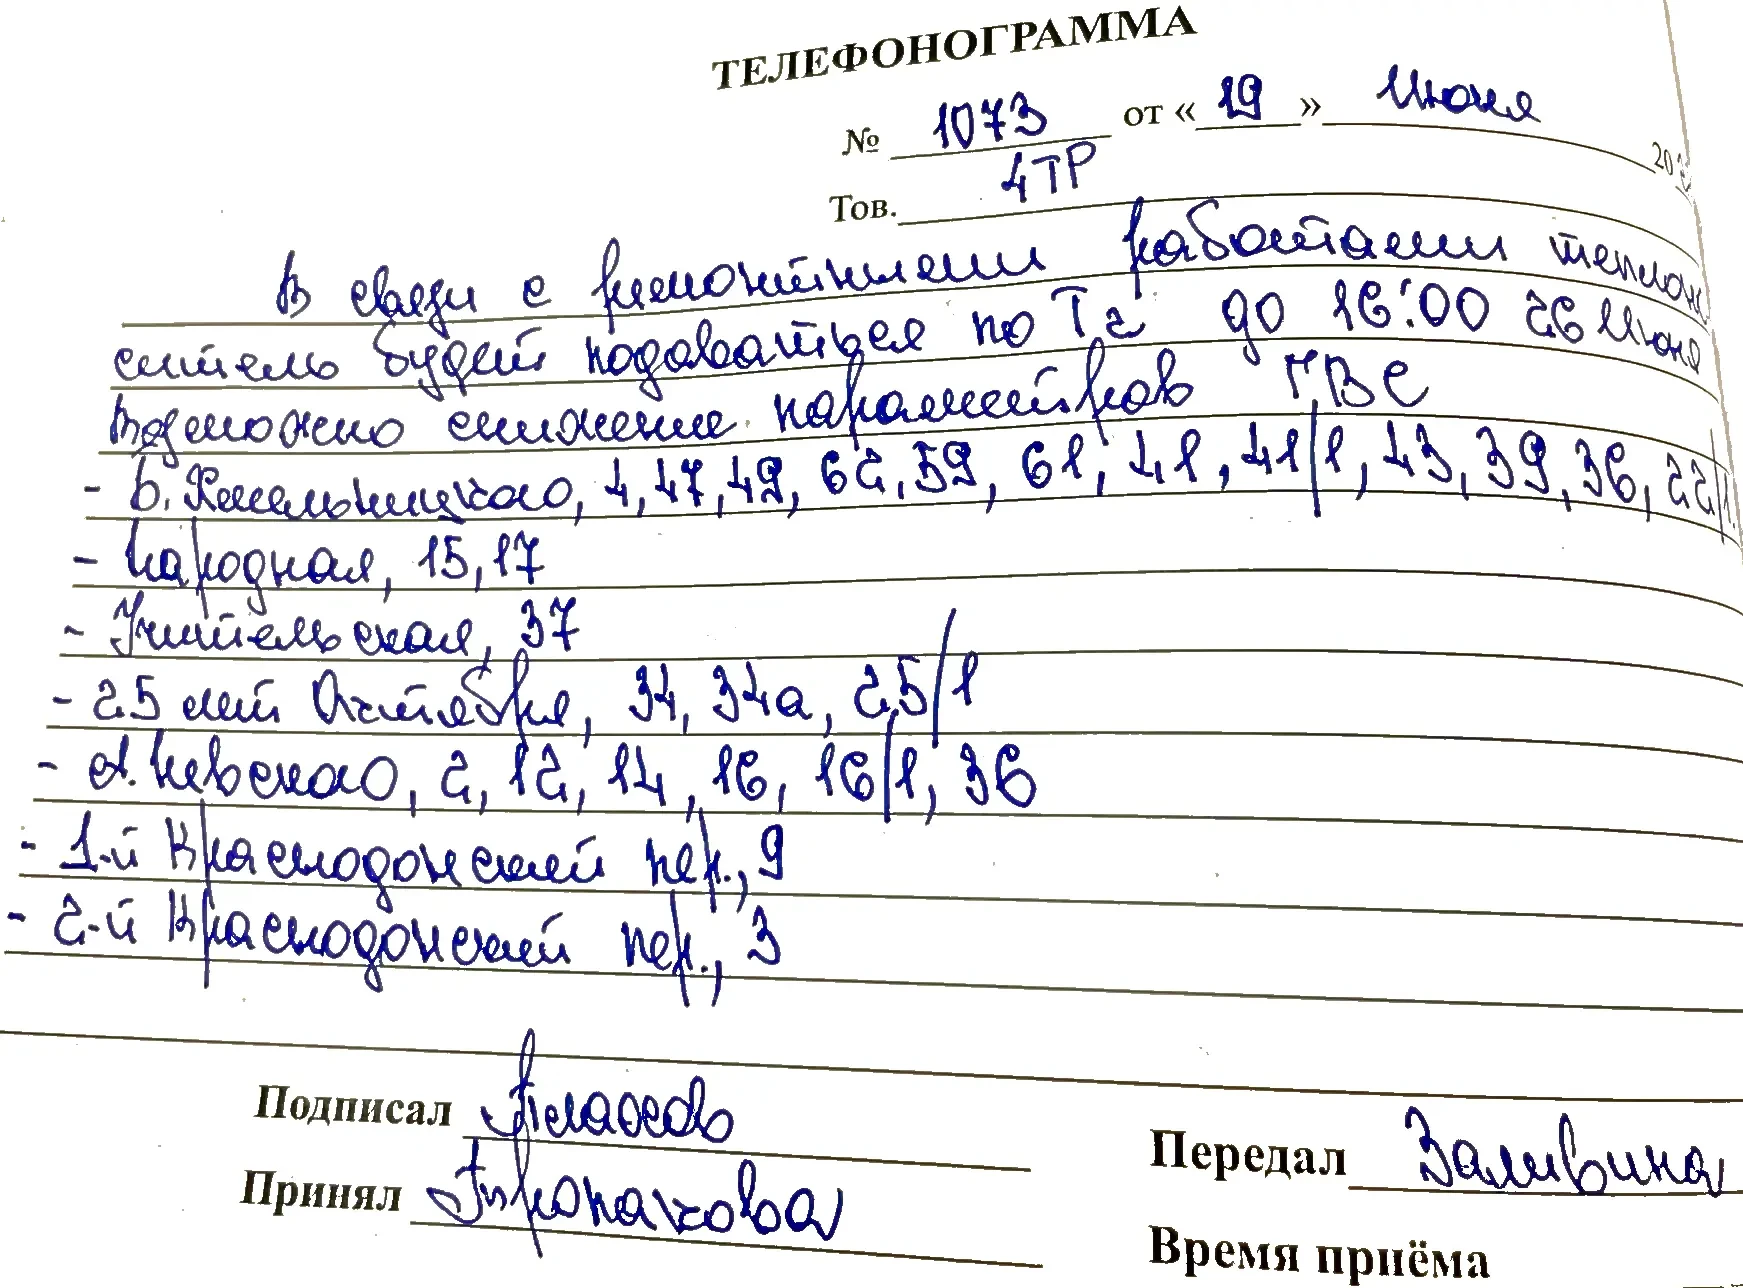 ТЕЛЕФОНОГРАММА
№ 1073 от « 19 » Июня 20
Тов. 4ТР
В связи с ремонтными работами теплон
ситель будет подаваться по Т2 до 16:00 26 Июня
Возможно снижение параметров ГВС
- Б. Хмельницкого, 4, 47, 49, 62, 59, 61, 41, 41/1, 43, 39, 36, 22/1.
- Народная, 15, 17
- Учительская, 37
- 25 лет Октября, 34, 34а, 25/1
- А. Невского, 2, 12, 14, 16, 16/1, 36
- 1-й Краснодонский пер., 9
- 2-й Краснодонский пер., 3
Подписал Плахов Передал Заливина
Принял
Время приёма